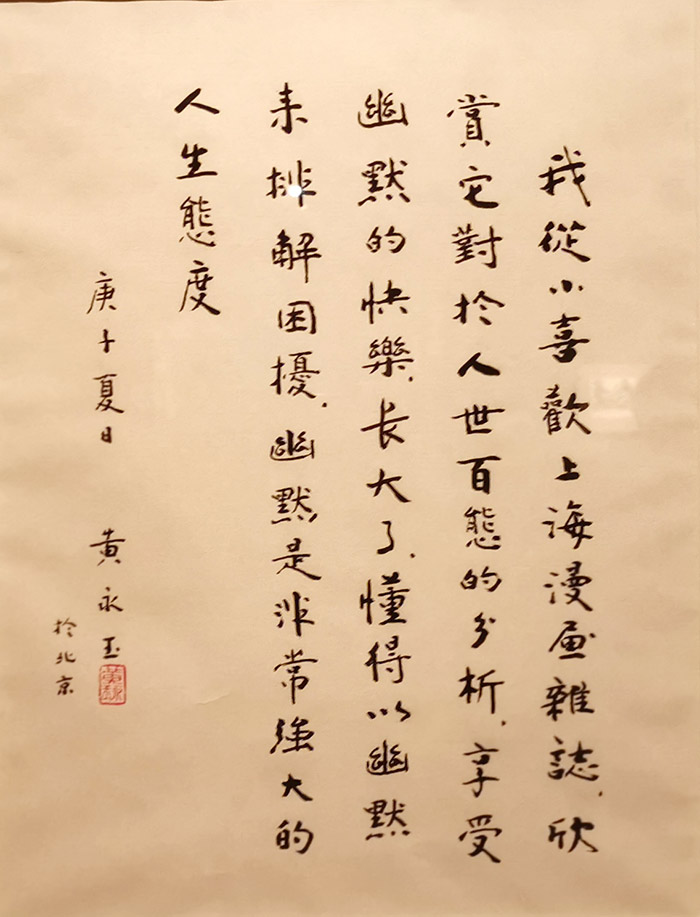 我從小喜歡上海漫画雜誌，欣
賞它對於人世百態的分析，享受
幽默的快樂，长大了，懂得以幽默
来排解困擾，幽默是非常強大的
人生態度
庚子夏日 黄永玉
於北京